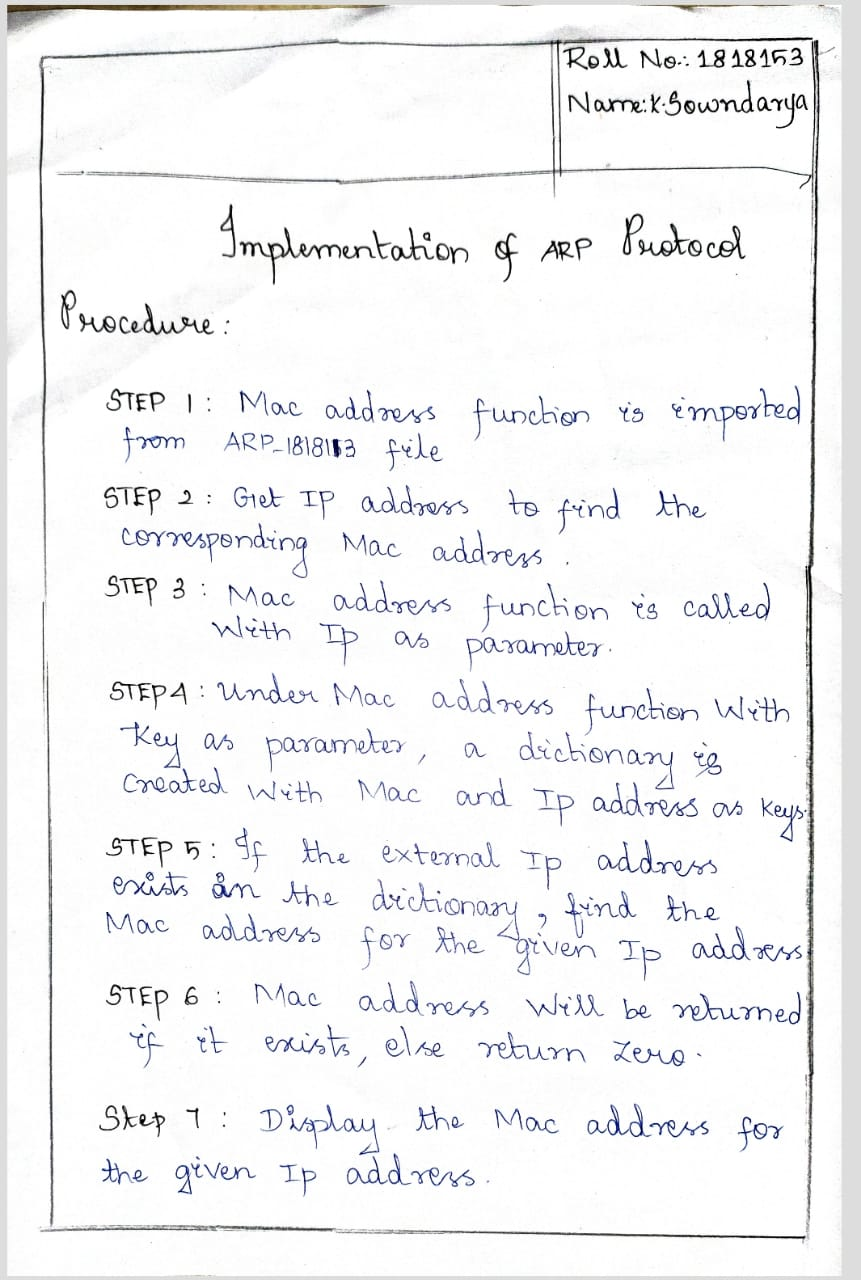 Roll No.: 1818153
Name: K. Sowndarya
Implementation of ARP Protocol
Procedure:
STEP 1: Mac address function is imported
from ARP_1818153 file
STEP 2: Get IP address to find the
corresponding Mac address.
STEP 3: Mac address function is called
With Ip as parameter.
STEP4: Under Mac address function With
Key as parameter, a dictionary is
Created With Mac and Ip address as keys.
STEP 5: If the external Ip address
exists in the dictionary, find the
Mac address for the given Ip address
STEP 6: Mac address Will be returned
if it exists, else return Zero.
Step 7: Display the Mac address for
the given Ip address.